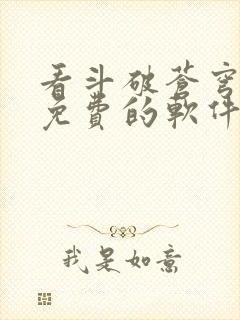 看斗破蒼穹
免費的軟件
我是如意